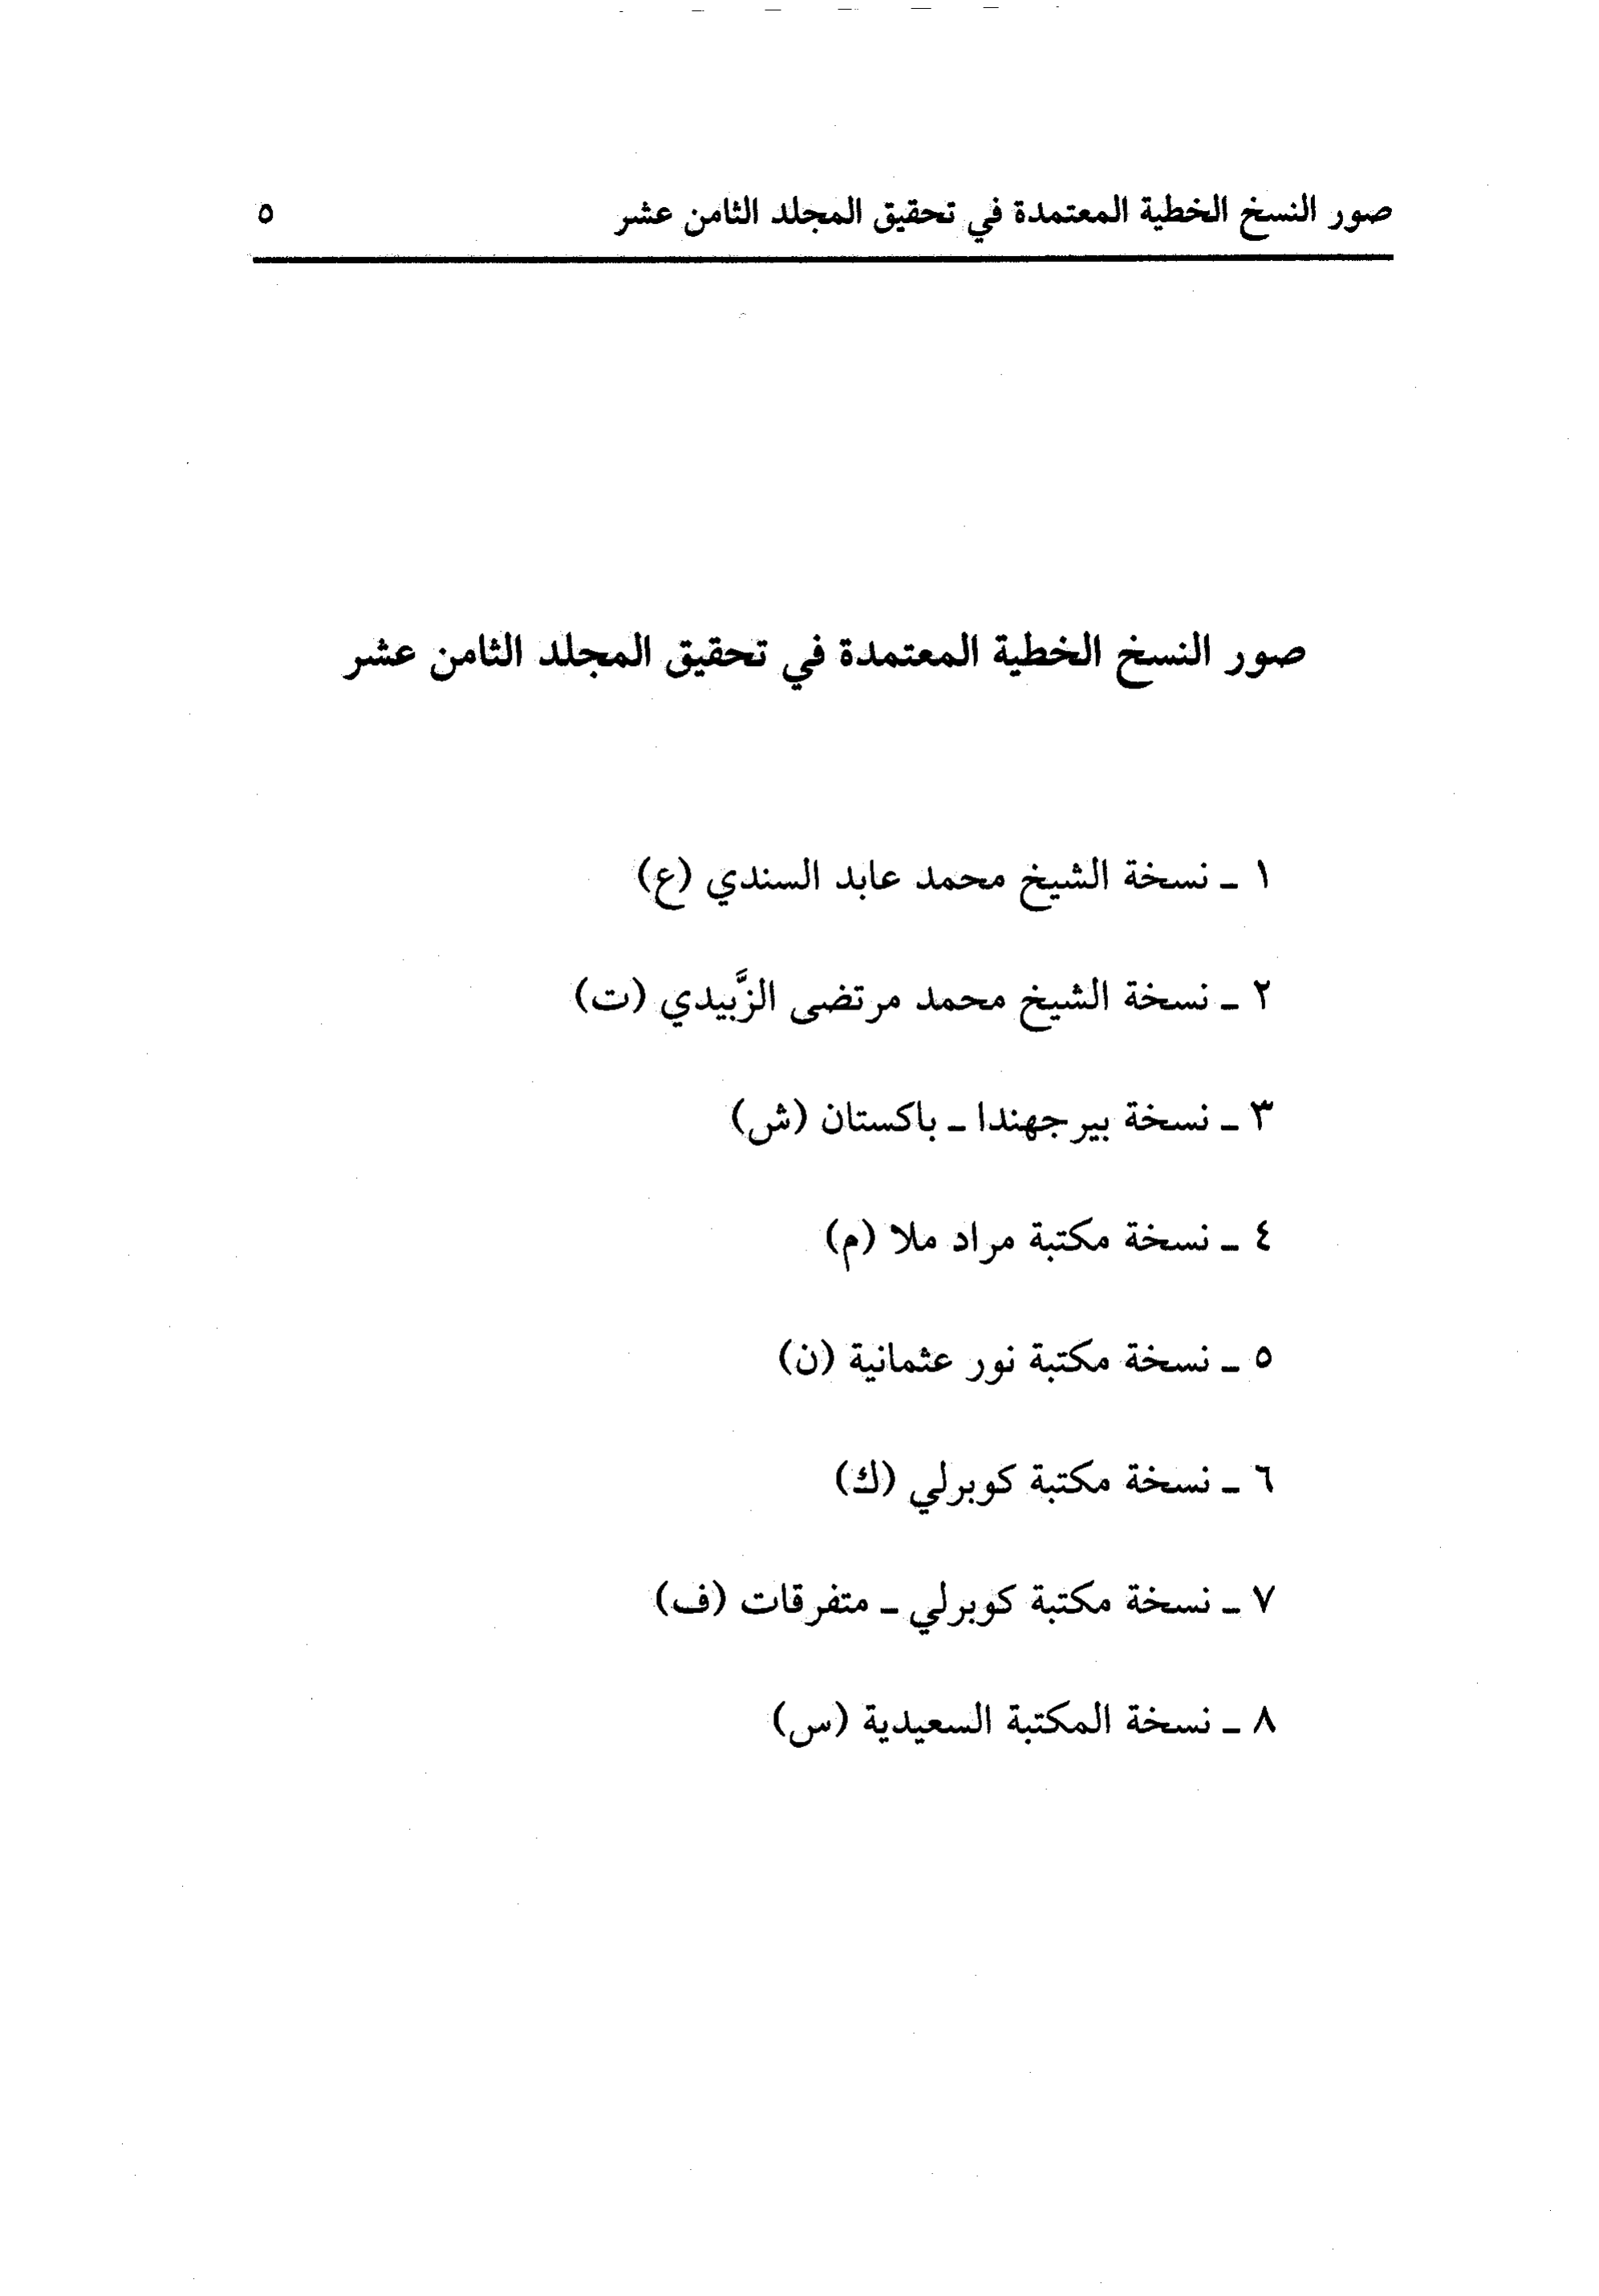 صور النسخ الخطية المعتمدة في تحقيق المجلد الثامن عشر ٥
صور النسخ الخطية المعتمدة في تحقيق المجلد الثامن عشر
١ ـ نسخة الشيخ محمد عابد السندي (ع)
٢ ـ نسخة الشيخ محمد مرتضى الزَّبيدي (ت)
٣ ـ نسخة بير جهندا ـ باكستان (ش)
٤ ـ نسخة مكتبة مراد ملا (م)
٥ ـ نسخة مكتبة نور عثمانية (ن)
٦ ـ نسخة مكتبة كوبرلي (ك)
٧ ـ نسخة مكتبة كوبرلي ـ متفرقات (ف)
٨ ـ نسخة المكتبة السعيدية (س)